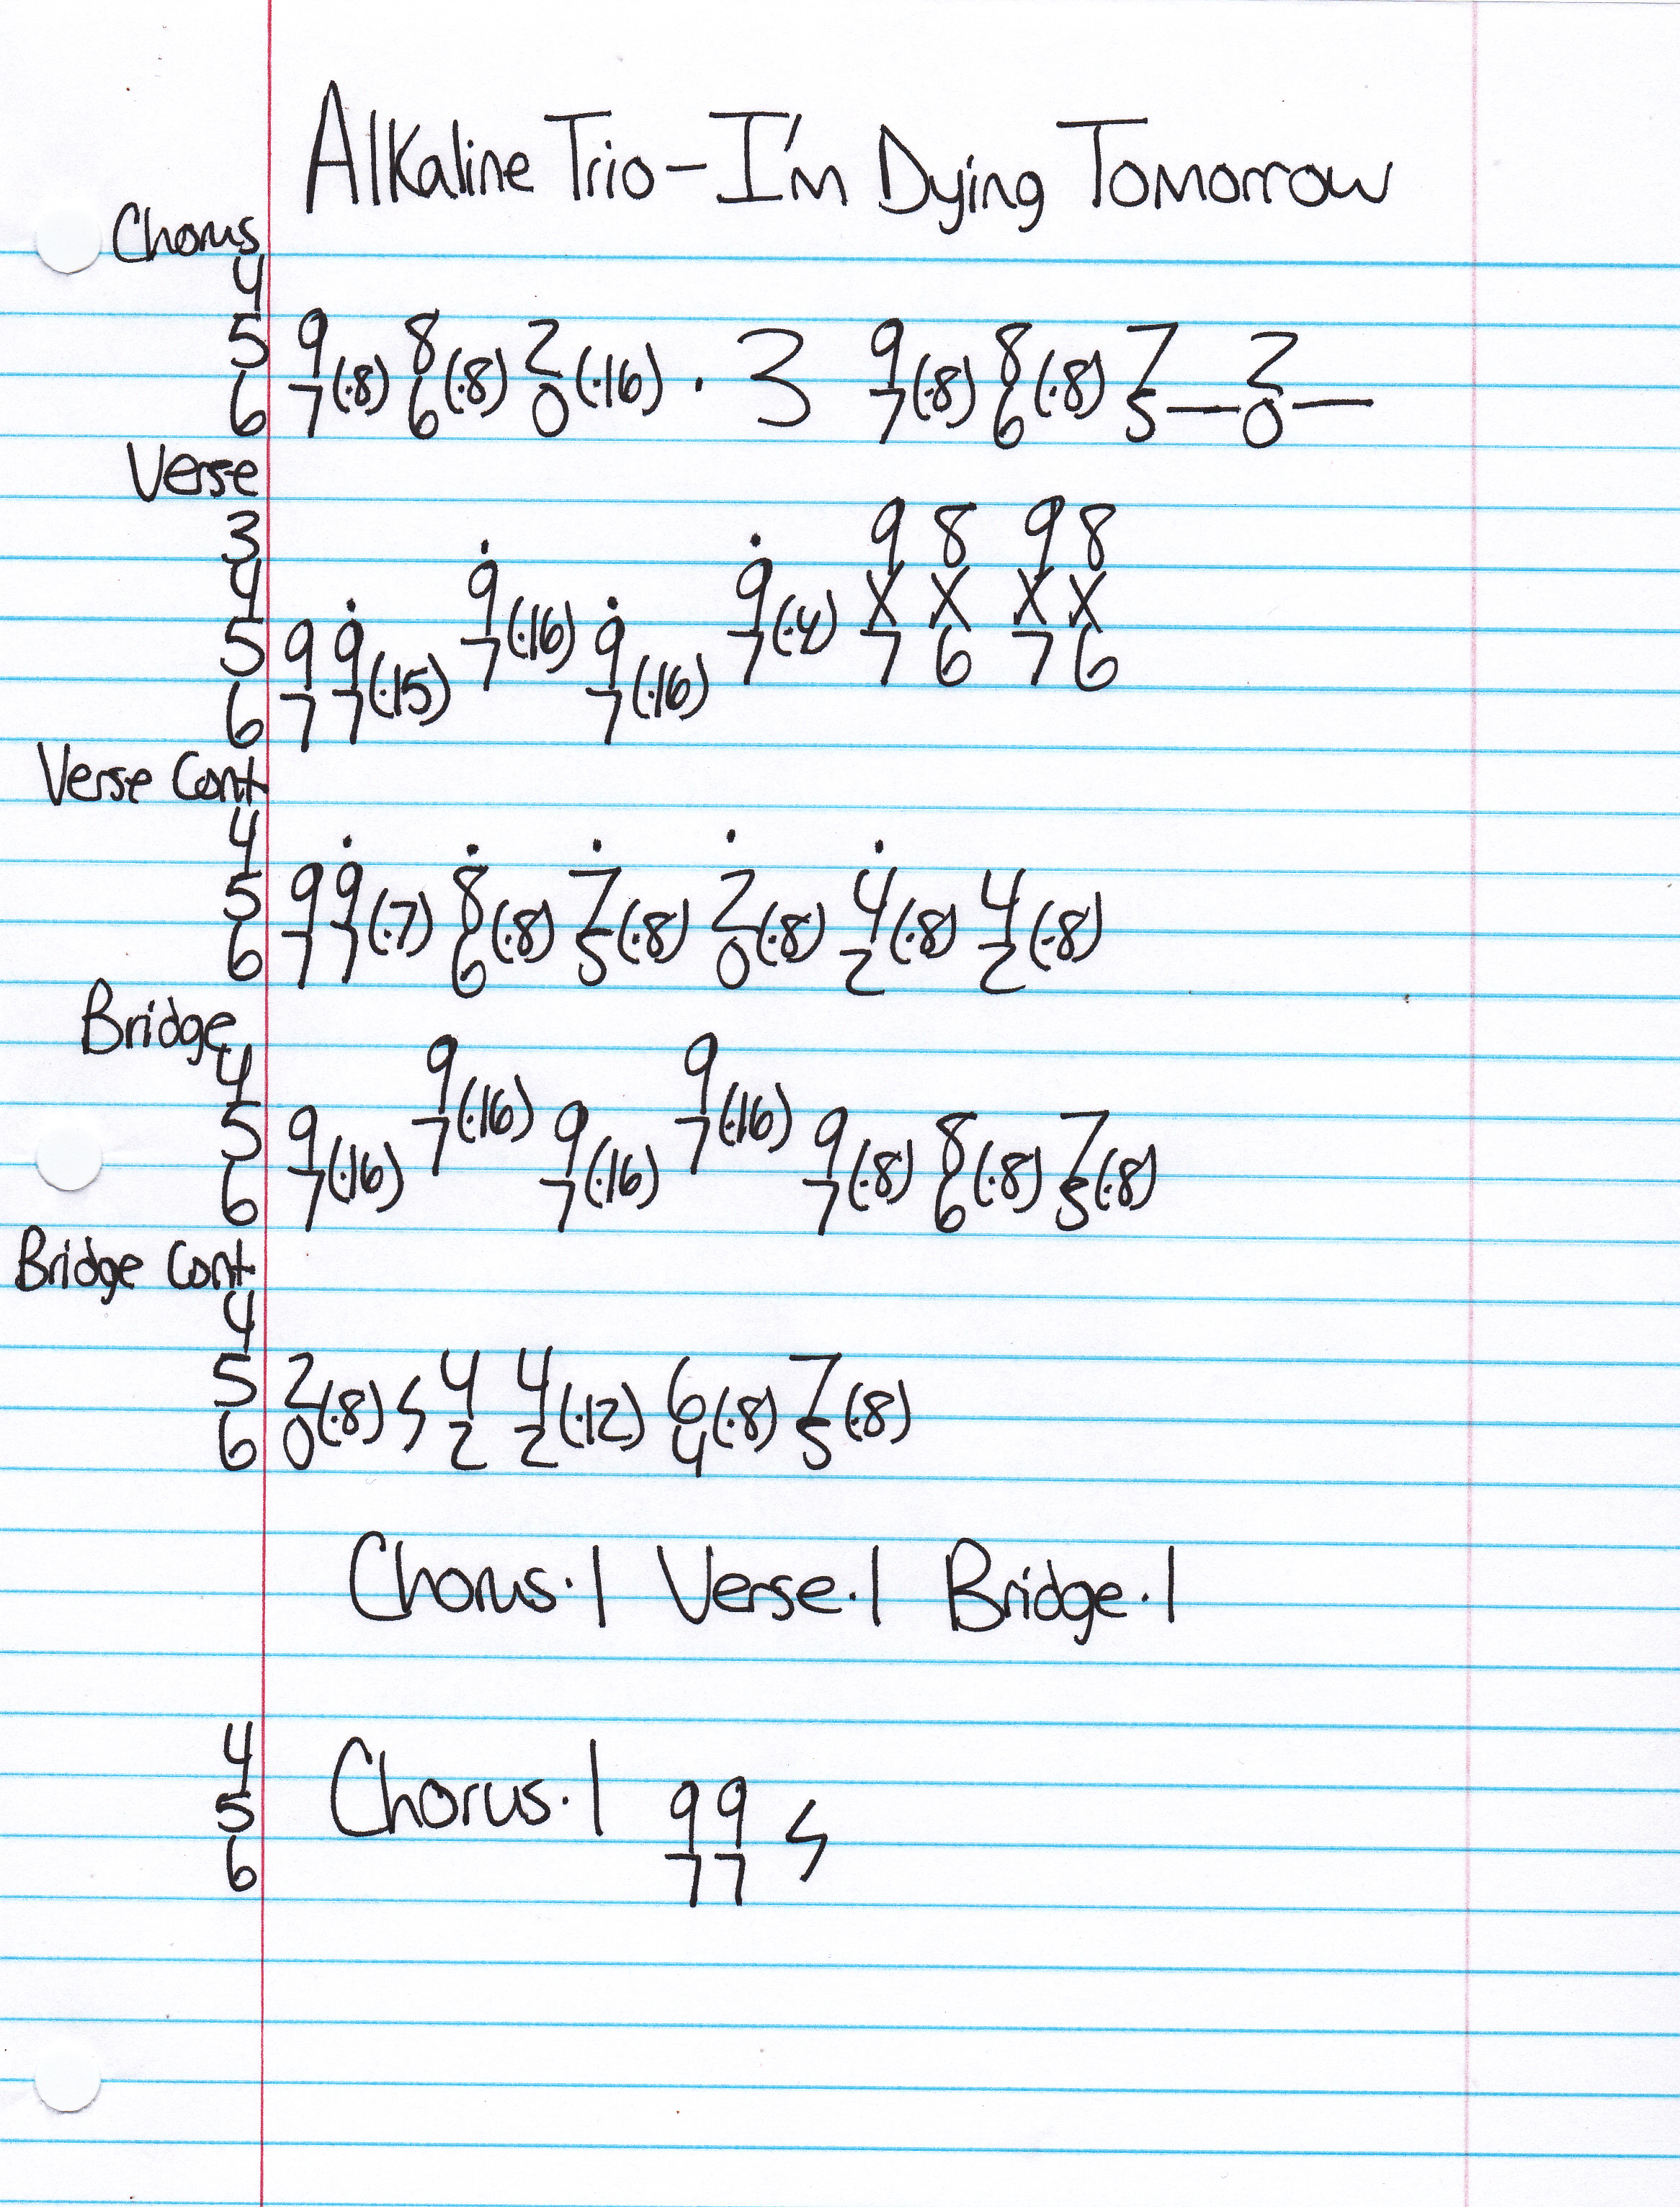 Alkaline Trio - I'm Dying Tomorrow
Chorus
4
5 9 8 2 9 8 7 2
6 7(·8) 6(·8) 0(·16) · 3 7(·8) 6(·8) 5— 0—
Verse
3 9 8 9 8
4 9 9 X X X X
5 9 9 7(·16) 9 7(·4) 7 6 7 6
6 7 7(·15) 7(·16)
Verse Cont
4
5 9 9 8 7 2 4 4
6 7 7(·7) 6(·8) 5(·8) 0(·8) 2(·8) 2(·8)
Bridge
4 9 9
5 9 7(·16) 9 7(·16) 9 8 7
6 7(·16) 7(·16) 7(·8) 6(·8) 5(·8)
Bridge Cont
4
5 2 4 4 6 7
6 0(·8) 2 2(·12) 4(·8) 5(·8)
Chorus·1 Verse·1 Bridge·1
4
5 Chorus·1 9 9
6 7 7